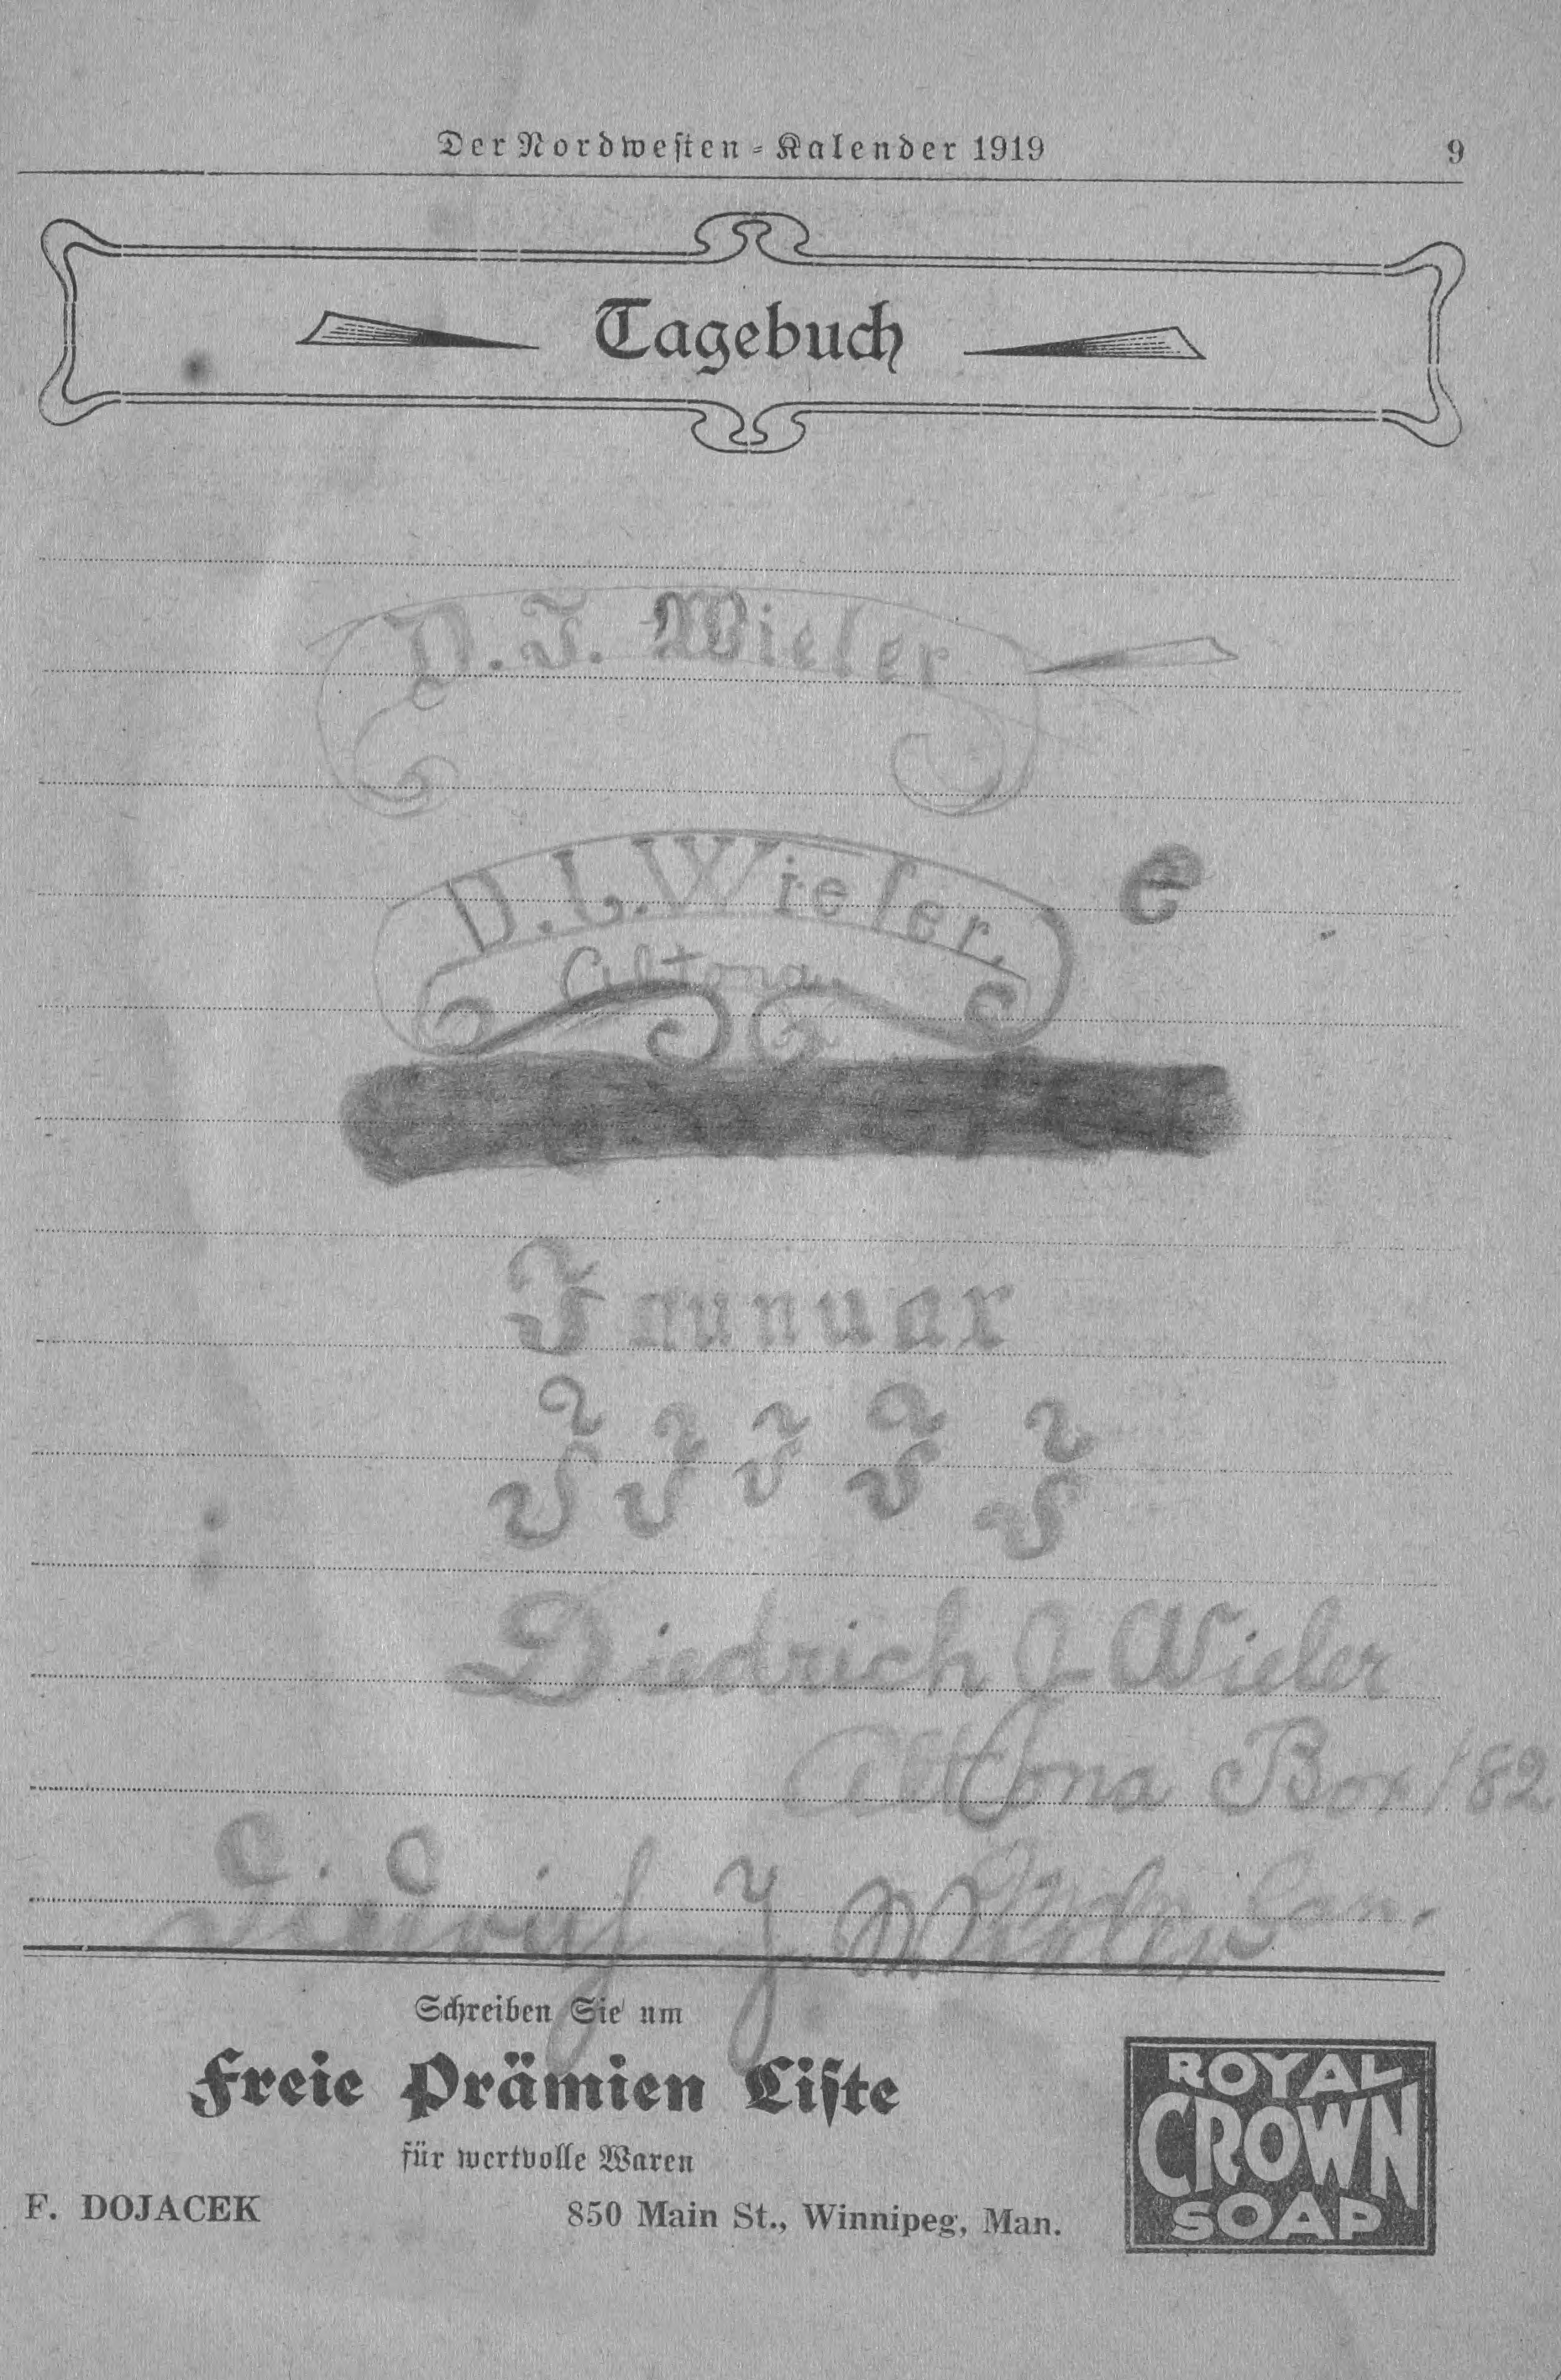 Der Nordwesten-Kalender 1919 9
Tagebuch
D. J. Wieler
D. J. Wieler.
e
Altona
Jaunuar
J J J J J
Diedrich J Wieler
Alttona Box 182
J. Wieler Man.
Schreiben Sie um
Freie Prämien Liste
für wertvolle Waren
F. DOJACEK 850 Main St., Winnipeg, Man.
ROYAL
CROWN
SOAP